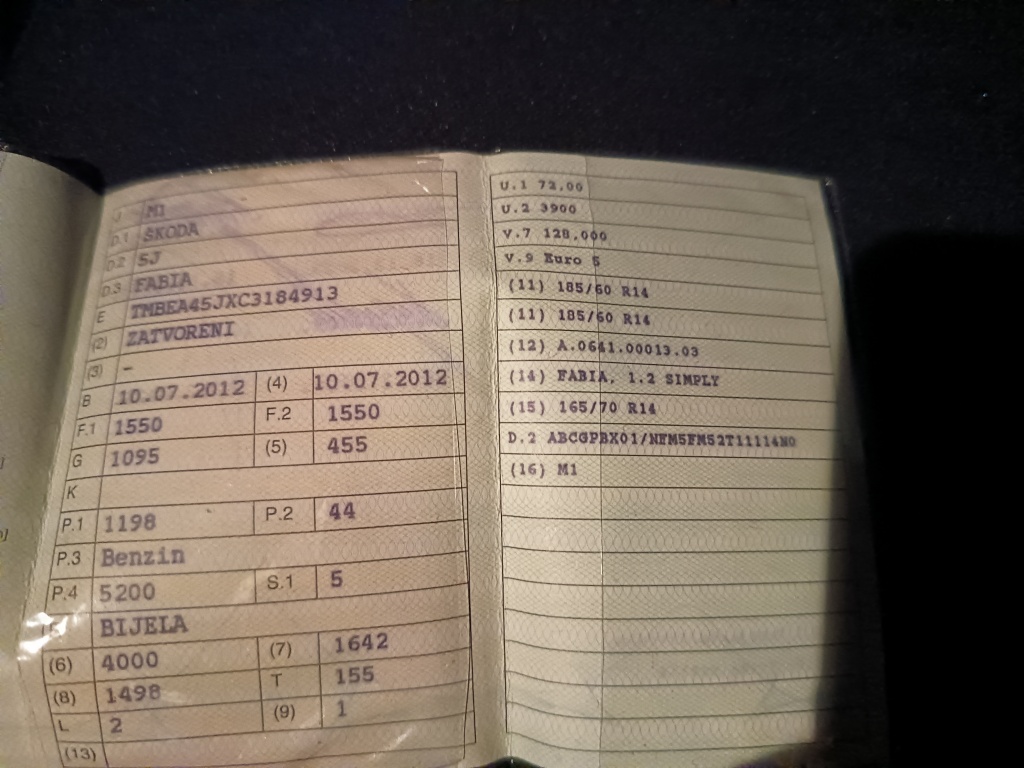 J M1
D.1 ŠKODA
D.2 5J
D.3 FABIA
E TMBEA45JXC3184913
(2) ZATVORENI
(3) -
B 10.07.2012 (4) 10.07.2012
F.1 1550 F.2 1550
G 1095 (5) 455
K
P.1 1198 P.2 44
P.3 Benzin
P.4 5200 S.1 5
BIJELA
(6) 4000 (7) 1642
(8) 1498 T 155
L 2 (9) 1
(13)
U.1 72,00
U.2 3900
V.7 128,000
V.9 Euro 5
(11) 185/60 R14
(11) 185/60 R14
(12) A.0641.00013.03
(14) FABIA, 1.2 SIMPLY
(15) 165/70 R14
D.2 ABCGPBX01/NFM5FM52T11114N0
(16) M1